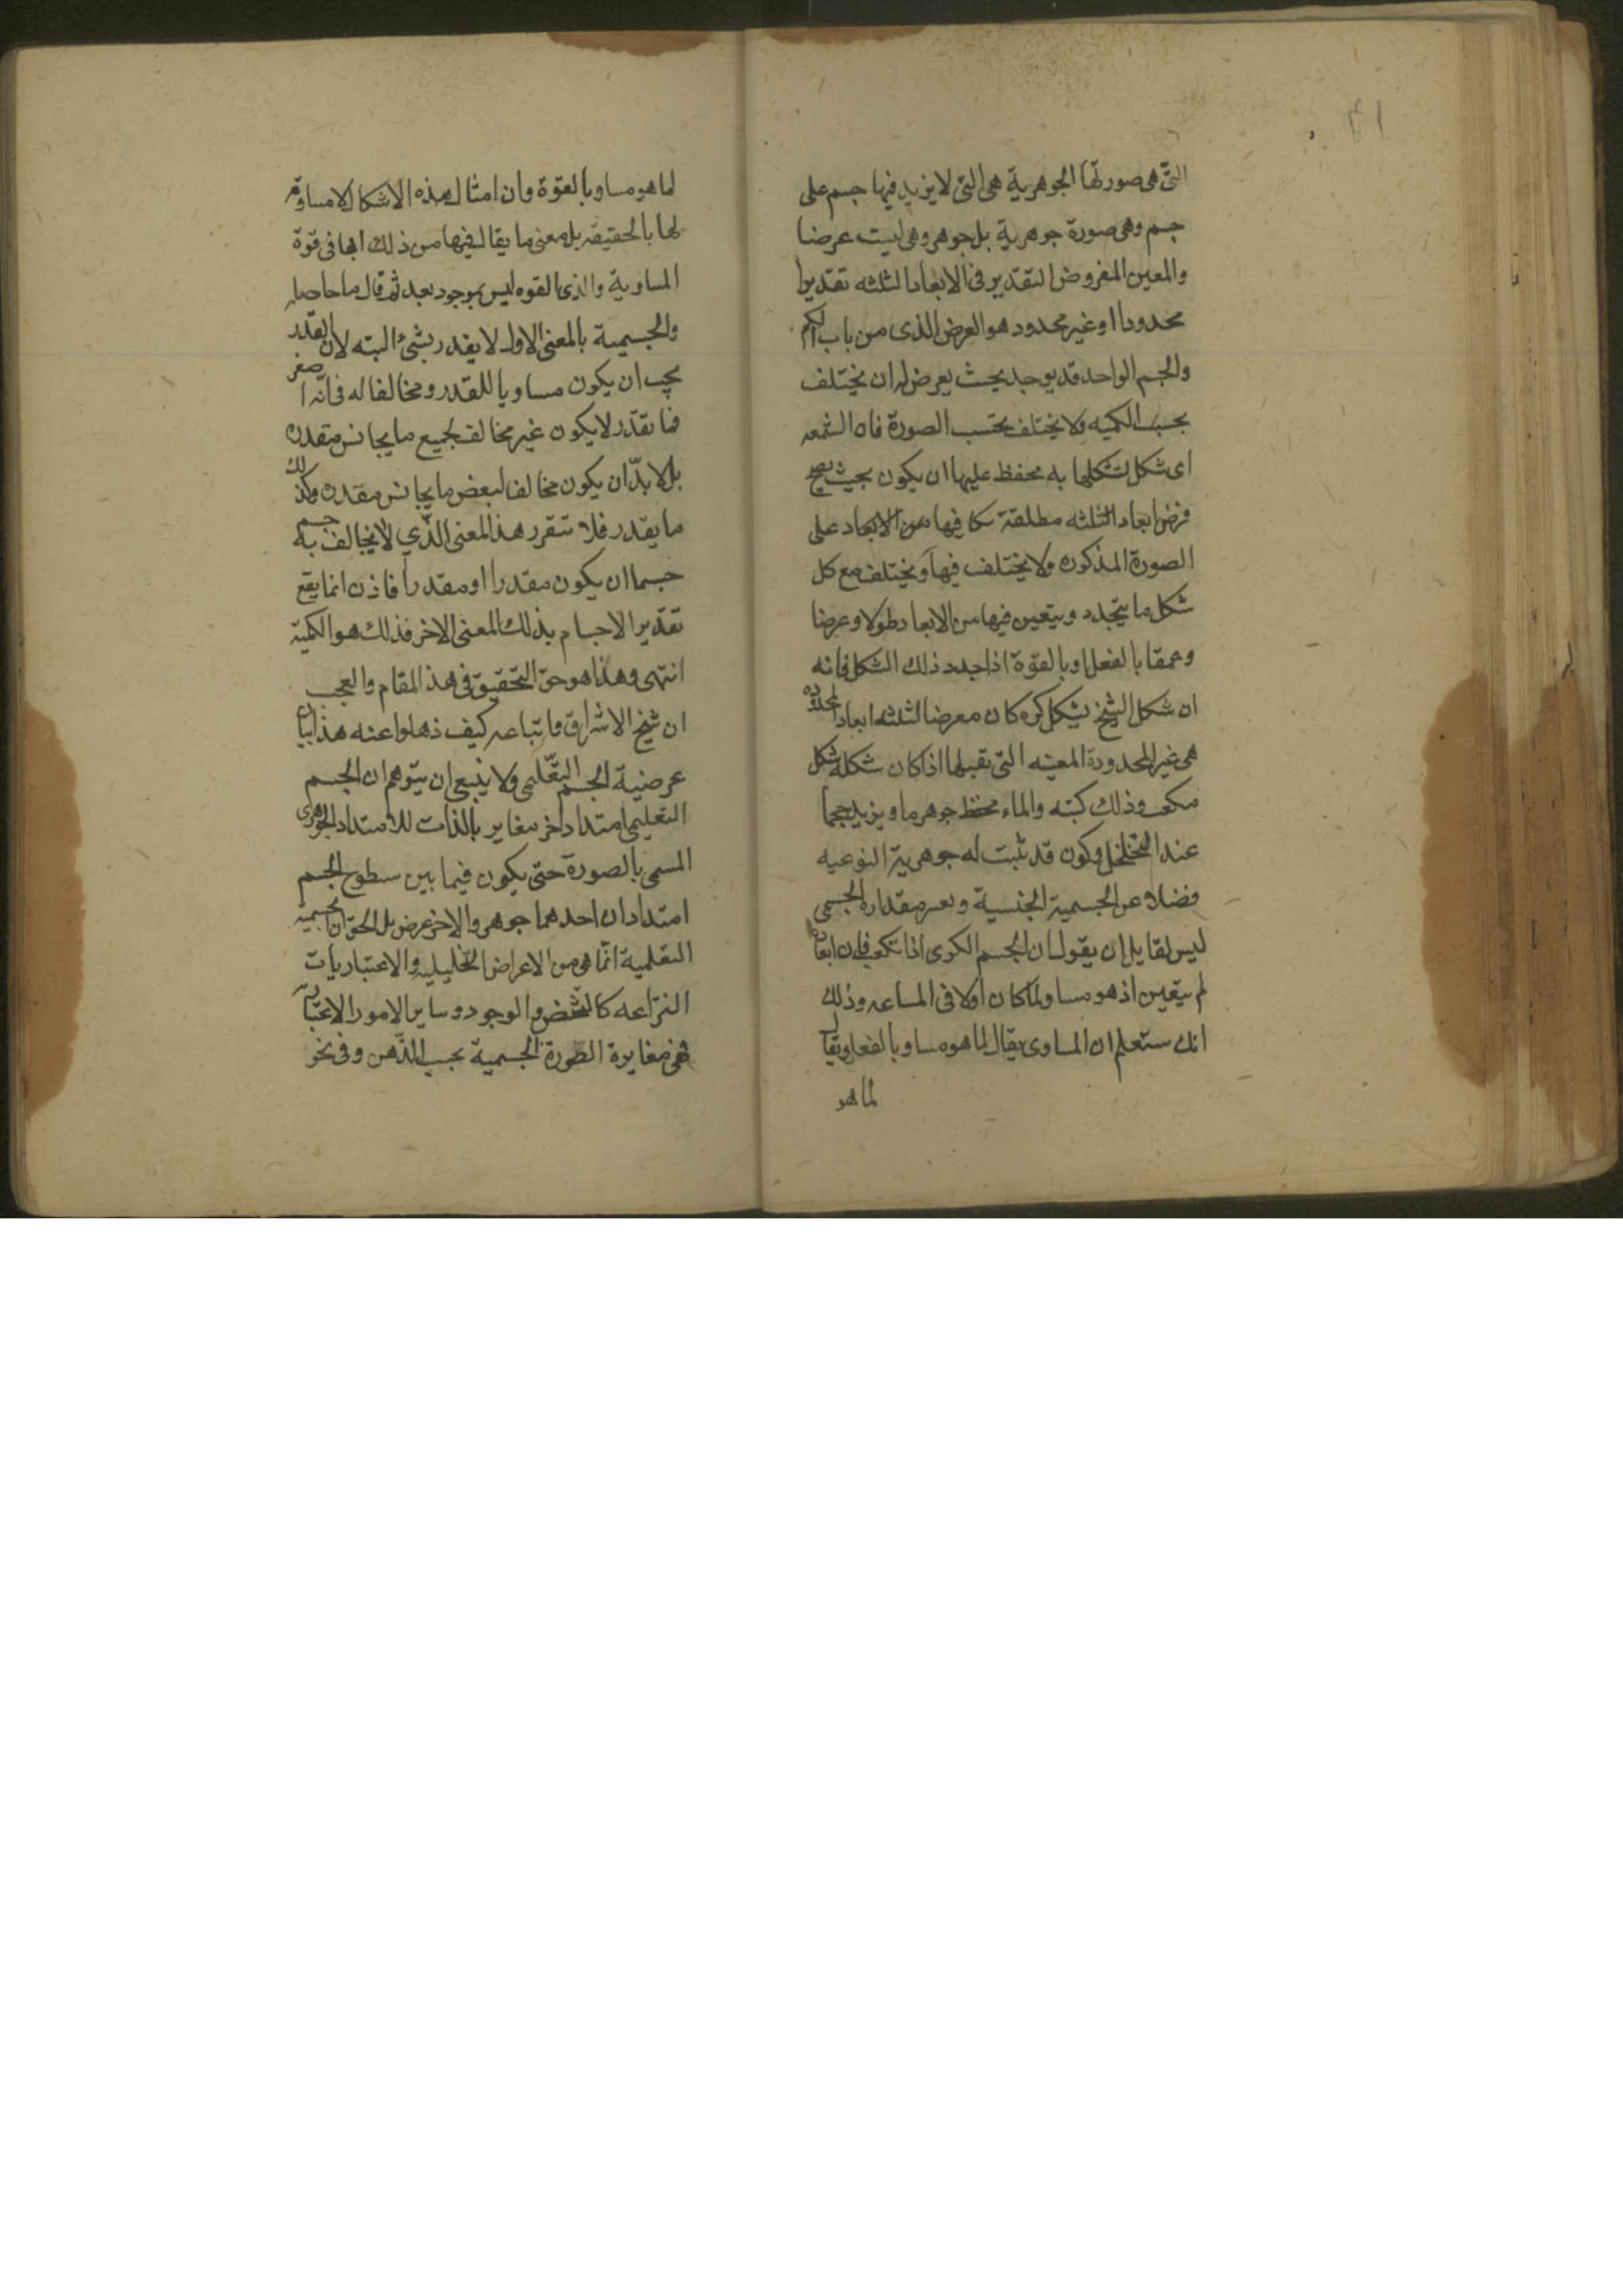 التی هی صورتها الجوهرية هی التی لا يزيد فيها جسم علی
جسم وهی صورة جوهرية بل جوهر وهی ليست عرضا
والمعين المفروض التقدير فی الابعاد الثلثه تقديرا
محدودا او غير محدود هو العرض الذی من باب الكم
والجسم الواحد قد يوجد بحيث يعرض له ان يختلف
بحسب الكميه ولا يختلف بحسب الصورة فان الشمعه
ای شكل لتشكلها به محفظ عليها ان يكون بحيث يصح
فرض ابعاد الثلثه مطلقة كا فيها من الابعاد علی
الصورة المذكوره ولا يختلف فيها ويختلف مع كل
شكل ما يتجدد ويتعين فيها من الابعاد طولا وعرضا
وعمقا بالفعل او بالقوة اذا جدد ذلك الشكل فانه
ان شكل الشيخ بشكل كره كان معرضا لثلثه ابعاد محدوده
هی غير المحدودة المعينه التی تقبلها اذا كان شكله شكل
مكعب وذلك كبته والماء محفظ جوهر ما ويزيد حجما
عند التخلخل وكون قد ثبت له جوهرية النوعيه
فضلا عن الجسمية الجنسية و مقداره الجسمی
ليس لقايل ان يقول ان الجسم الكری اذا تكعب فان ابعاده
لم يتعين اذ هو مساو لما كان اولا فی المساعه وذلك
انك ستعلم ان المساوی يقال لما هو مساو بالفعل ويقال
لما هو
لما هو مساو بالقوة وان امثال هذه الاشكال لا مساوة
لها بالحقيقه بل معنی ما يقال فيها من ذلك انها فی قوة
المساوية والذی القوه ليس بموجود بعد ثم قال ما حاصله
والجسمية بالمعنی الاول لا يقدر بشئ البته لان المقدر
يجب ان يكون مساويا للمقدر ومخالفا له فی انه اصغر
فما تقدر لا يكون غير مخالف لجميع ما يجانس مقدره
بل لا بدّ ان يكون مخالف لبعض ما يجانس مقدره وكذلك
ما يقدر فلا تتقرر هذا المعنی الذّي لا يخالف به جسم
جسما ان يكون مقدرا او مقدرا فاذن انما يقع
تقدير الاجسام بذلك المعنی الاخر فذلك هو الكمية
انتهی وهذا هو حق التحقيق فی هذا المقام والعجب
ان شيخ الاشراق واتباعه كيف ذهلوا عنه هذا بيان
عرضية الجسم التعّليمی ولا ينبغی ان يتوهم ان الجسم
التعليمی امتداد اخر مغاير بالذات للامتداد الجوهری
المسمی بالصورة حتی يكون فيما بين سطوح الجسم
امتدادان احدهما جوهر والاخر عرض بل الحق ان الجسمية
التعلمية انّما هی من الاعراض التحليلية والاعتباريات
النزاعه كالتشخص والوجود وساير الامور الاعتبارية
فهی مغايرة الصورة الجسمية بحسب الذّهن وفی نحو